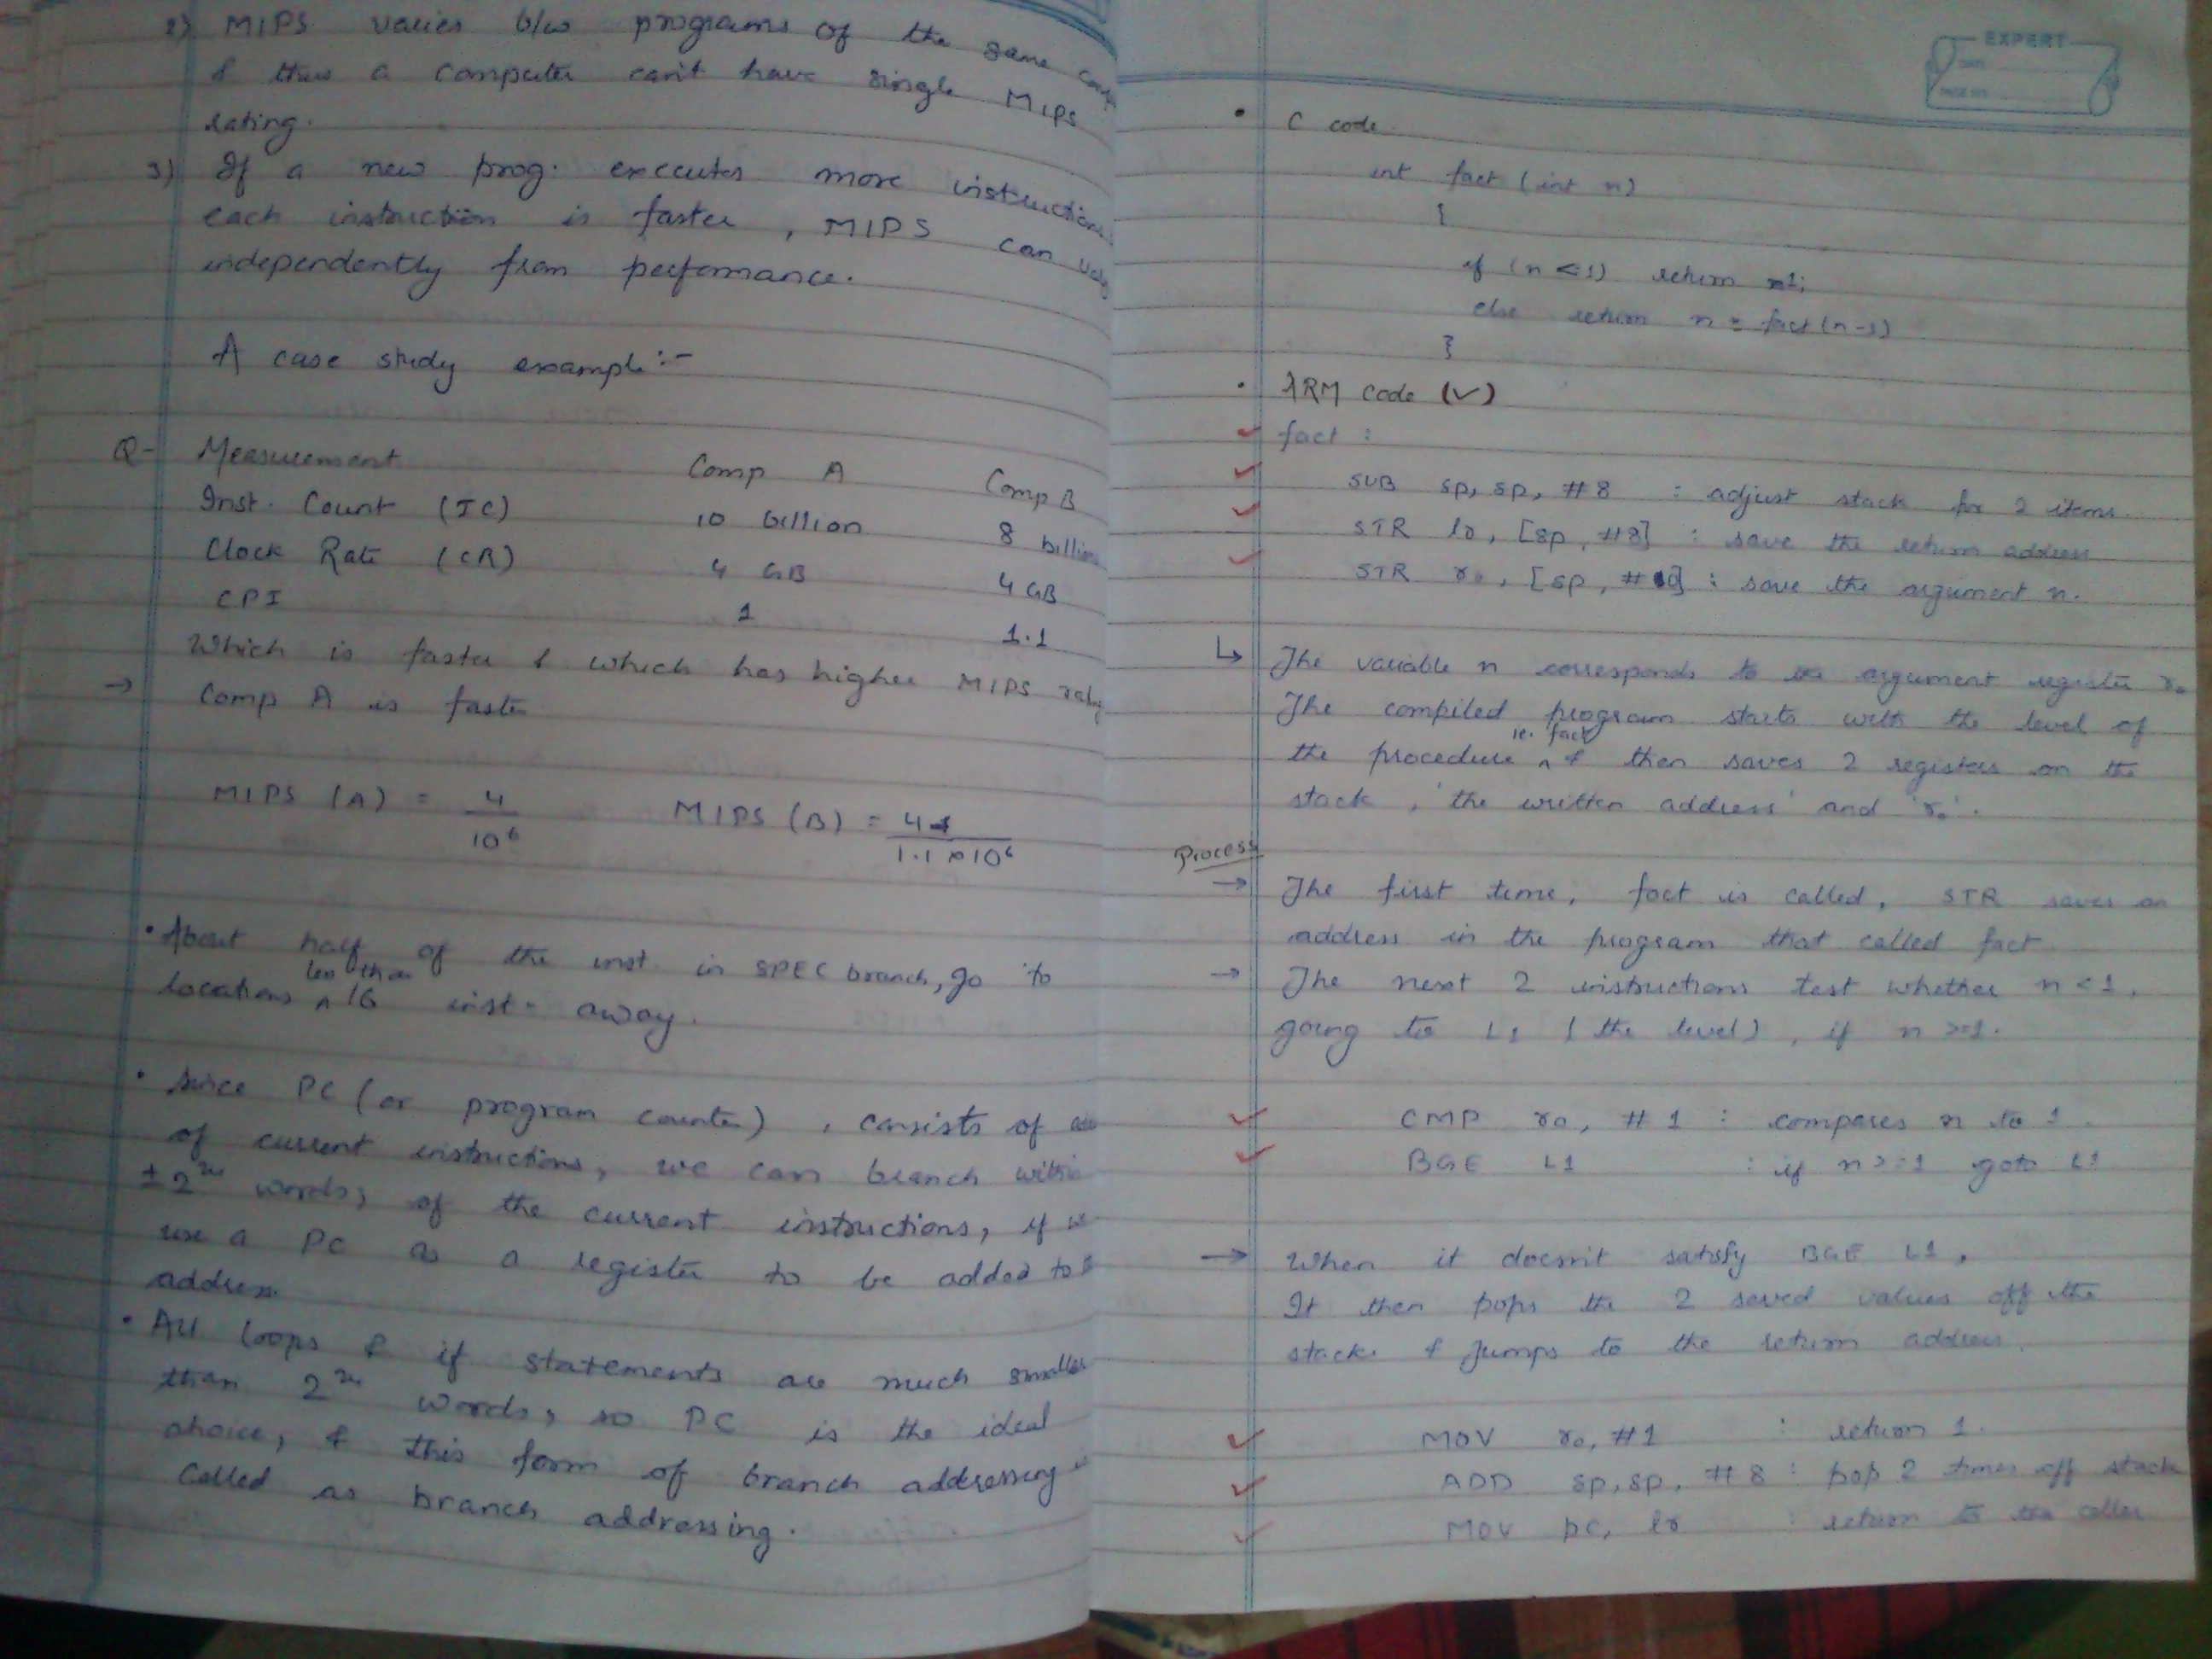 2) MIPS varies b/w programs of the same comp
& thus a computer can't have single MIPS
rating.
3) If a new prog. executes more instructions
each instruction is faster, MIPS can vary
independently from performance.
A case study example :-
Q- Measurement Comp A Comp B
Inst. Count (IC) 10 billion 8 billion
Clock Rate (CR) 4 GB 4 GB
CPI 1 1.1
Which is faster & which has higher MIPS
→ Comp A is faster
MIPS (A) = 4 / 10^6 MIPS (B) = 4 / 1.1 x 10^6
• About half of the inst. in SPEC branch, go to
locations less than 16 inst. away.
• Since PC (or program counter), consists of
of current instructions, we can branch within
± 2^24 words; of the current instructions, if we
use a PC as a register to be added to
address.
• All loops & if statements are much smaller
than 2^24 words, so PC is the ideal
choice, & this form of branch addressing
called as branch addressing.
EXPERT
• C code
int fact (int n)
{
if (n < 1) return 1;
else return n * fact (n-1)
}
• ARM code (✓)
fact :
SUB sp, sp, #8 : adjust stack for 2 items.
STR lr, [sp, #8] : save the return address
STR r0, [sp, #0] : save the argument n.
↳ The variable n corresponds to the argument register r0
The compiled program starts with the level of
the procedure ie. fact & then saves 2 registers on the
stack, 'the written address' and 'r0'.
Process
→ The first time, fact is called, STR saves an
address in the program that called fact
→ The next 2 instructions test whether n < 1,
going to L1 (the level), if n >=1.
CMP r0, #1 : compares n to 1.
BGE L1 : if n >=1 goto L1
→ When it doesn't satisfy BGE L1,
It then pops the 2 saved values off the
stacks & Jumps to the return address.
MOV r0, #1 : return 1.
ADD sp, sp, #8 : pop 2 times off stack
MOV pc, lr : return to the caller